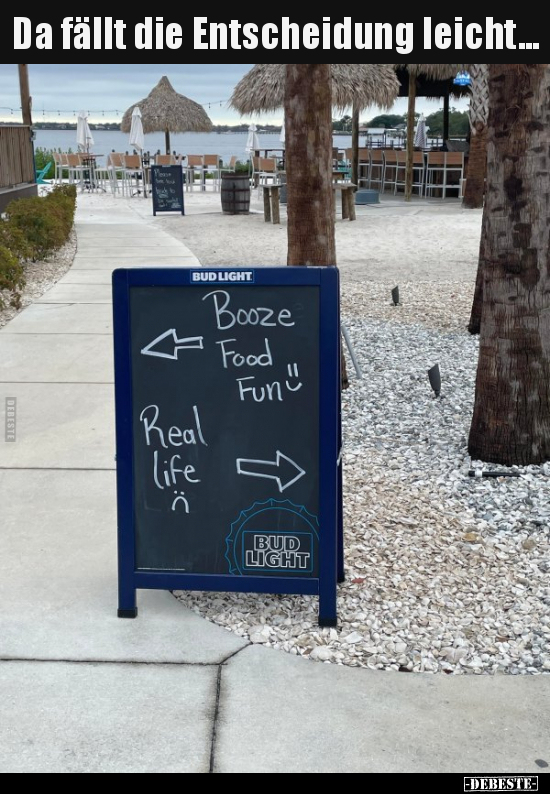 Da fällt die Entscheidung leicht...
BUD LIGHT
Booze
Food
Fun
Real
life
BUD
LIGHT
DEBESTE
-DEBESTE-